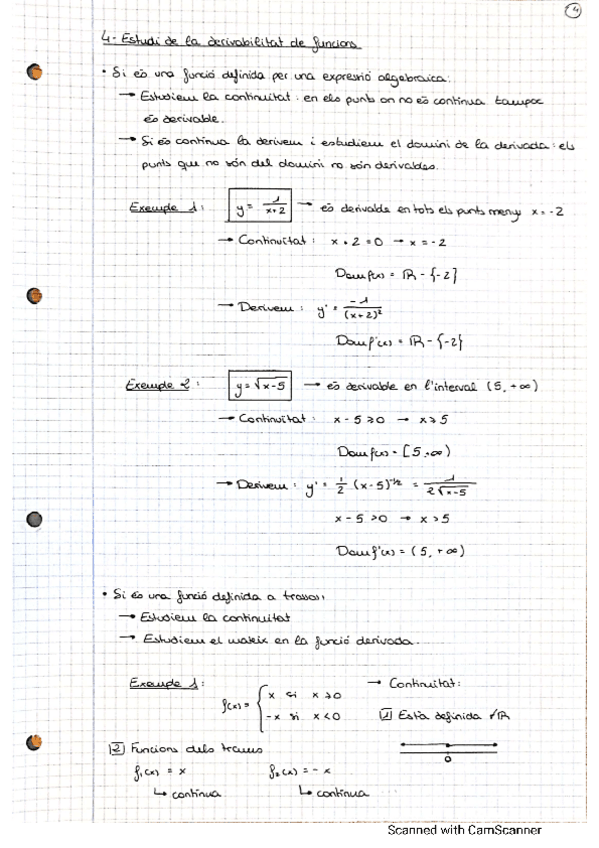 4
4.- Estudi de la derivabilitat de funcions
• Si és una funció definida per una expressió algebraica:
→ Estudiem la continuïtat: en els punts on no és contínua tampoc
és derivable.
→ Si és contínua la derivem i estudiem el domini de la derivada: els
punts que no són del domini no són derivables.
Exemple 1: y = 1/(x+2) → és derivable en tots els punts menys x = -2
→ Continuïtat: x + 2 = 0 → x = -2
Dom f(x) = ℝ - {-2}
→ Derivem: y' = -1/(x+2)²
Dom f'(x) = ℝ - {-2}
Exemple 2: y = √(x-5) → és derivable en l'interval (5, +∞)
→ Continuïtat: x - 5 ≥ 0 → x ≥ 5
Dom f(x) = [5, ∞)
→ Derivem: y' = 1/2 (x-5)^(-1/2) = 1/(2√(x-5))
x - 5 > 0 → x > 5
Dom f'(x) = (5, +∞)
• Si és una funció definida a trossos:
→ Estudiem la continuïtat
→ Estudiem el mateix en la funció derivada.
Exemple 1: f(x) = { x si x ≥ 0 → Continuïtat:
-x si x < 0 1 Està definida ∀ℝ
2 Funcions dels trams
0
f₁(x) = x f₂(x) = -x
↳ contínua ↳ contínua
Scanned with CamScanner